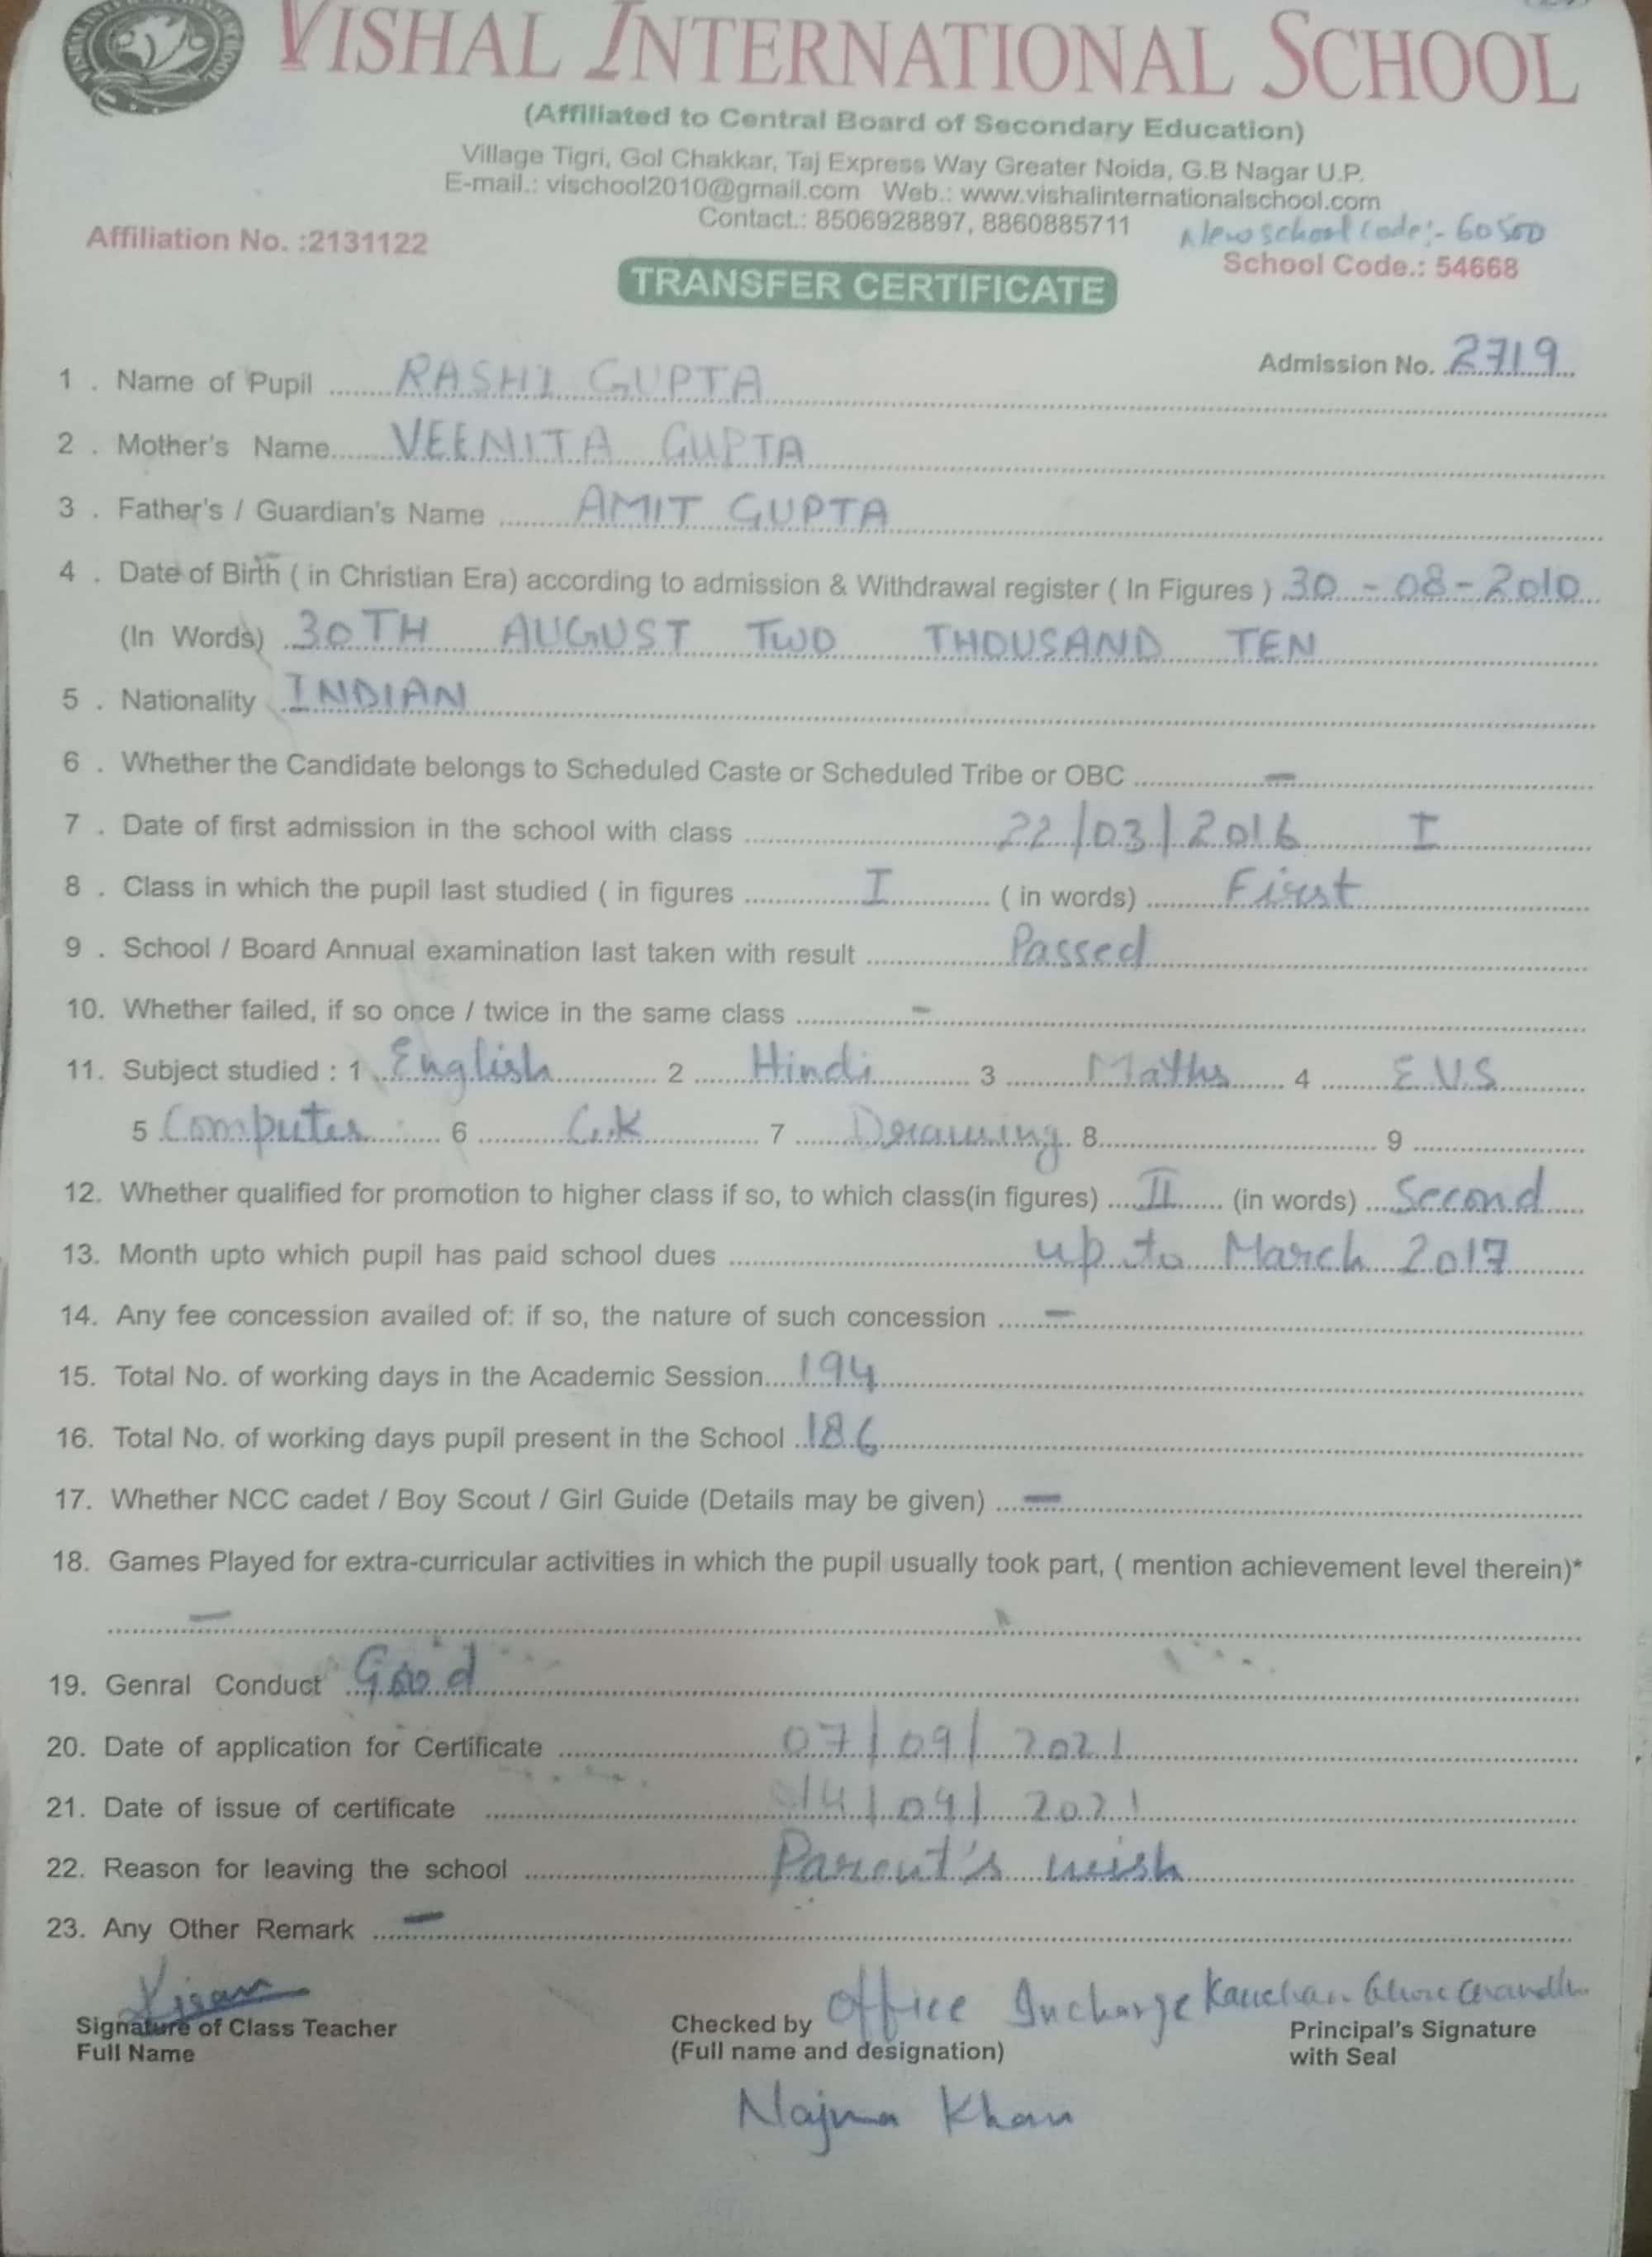 VISHAL INTERNATIONAL SCHOOL
(Affiliated to Central Board of Secondary Education)
Village Tigri, Gol Chakkar, Taj Express Way Greater Noida, G.B Nagar U.P.
E-mail.: vischool2010@gmail.com Web.: www.vishalinternationalschool.com
Contact.: 8506928897, 8860885711
New school Code:- 60500
Affiliation No. :2131122
School Code.: 54668
TRANSFER CERTIFICATE
Admission No. 2719
1 . Name of Pupil RASHI GUPTA
2 . Mother's Name VEENITA GUPTA
3 . Father's / Guardian's Name AMIT GUPTA
4 . Date of Birth ( in Christian Era) according to admission & Withdrawal register ( In Figures ) 30 - 08 - 2010
(In Words) 30TH AUGUST TWO THOUSAND TEN
5 . Nationality INDIAN
6 . Whether the Candidate belongs to Scheduled Caste or Scheduled Tribe or OBC –
7 . Date of first admission in the school with class 22/03/2016 I
8 . Class in which the pupil last studied ( in figures I ( in words) First
9 . School / Board Annual examination last taken with result Passed
10. Whether failed, if so once / twice in the same class -
11. Subject studied : 1 English 2 Hindi 3 Maths 4 E.V.S
5 Computer 6 G.K 7 Drawing 8 9
12. Whether qualified for promotion to higher class if so, to which class(in figures) II (in words) Second
13. Month upto which pupil has paid school dues up to March 2017
14. Any fee concession availed of: if so, the nature of such concession –
15. Total No. of working days in the Academic Session 194
16. Total No. of working days pupil present in the School 186
17. Whether NCC cadet / Boy Scout / Girl Guide (Details may be given) –
18. Games Played for extra-curricular activities in which the pupil usually took part, ( mention achievement level therein)*
–
19. Genral Conduct Good
20. Date of application for Certificate 07/09/2021
21. Date of issue of certificate 14/09/2021
22. Reason for leaving the school Parent's wish
23. Any Other Remark –
Kiran
Signature of Class Teacher
Full Name
Checked by Office Incharge
(Full name and designation)
Najma Khan
Kanchan
Principal's Signature
with Seal